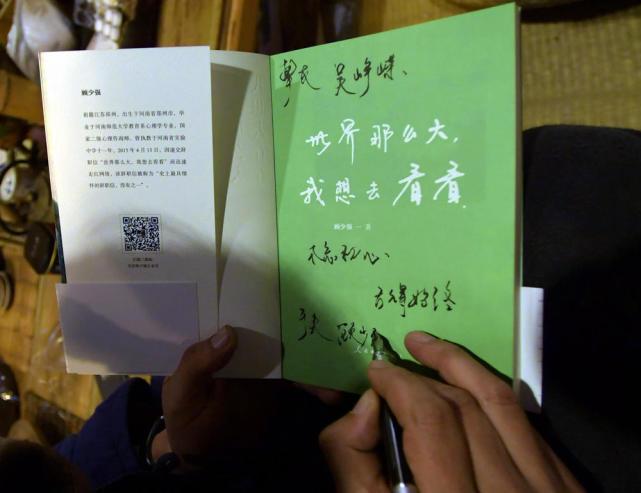 顾少强
祖籍江苏邳州，出生于河南省郑州市，毕
业于河南师范大学教育系心理学专业，国
家二级心理咨询师。曾执教于河南省实验
中学十一年。2015年4月13日，因递交辞
职信“世界那么大，我想去看看”而迅速
走红网络，该辞职信被称为“史上最具情
怀的辞职信，没有之一”。
吴峥嵘、
世界那么大，
我想去看看
顾少强 — 著
不忘初心、
方得始终